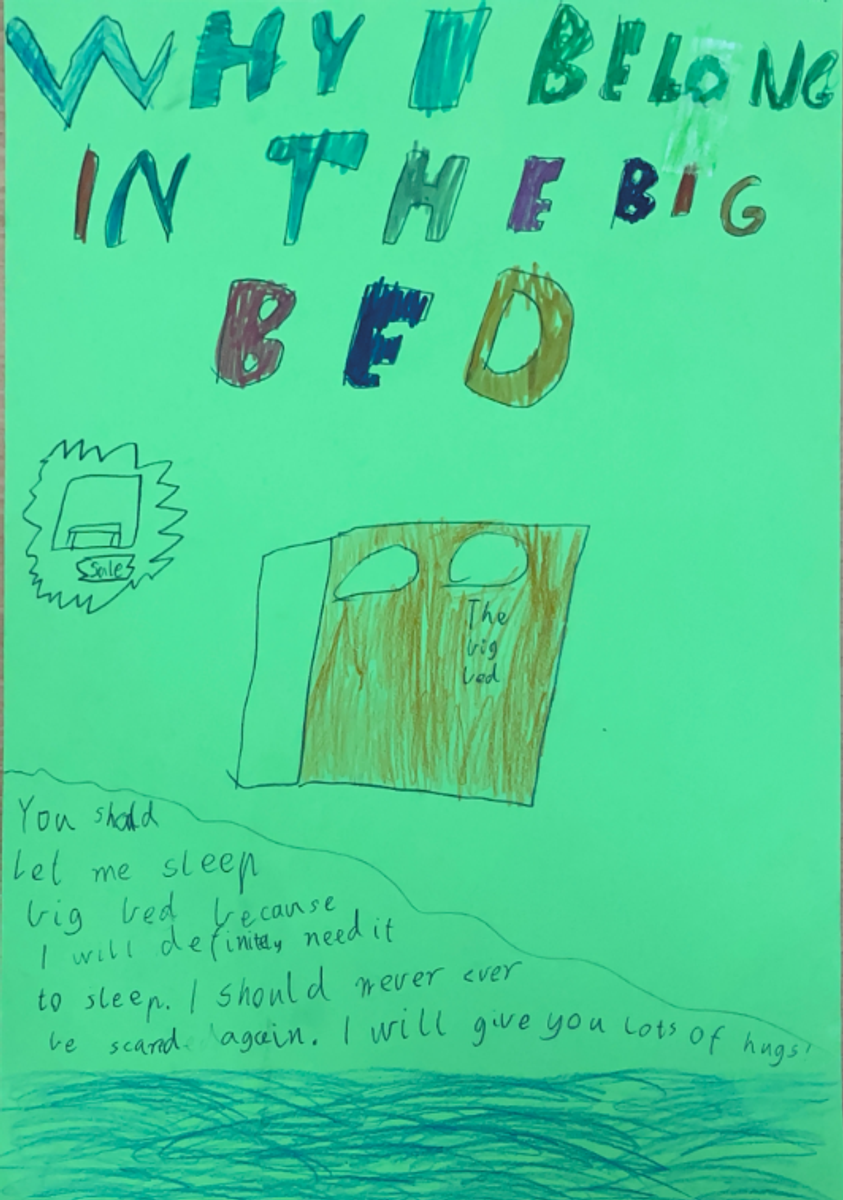 WHY I BELONG
IN THE BIG
BED
Sale
The
big
bed
You should
Let me sleep
big bed because
I will definitely need it
to sleep. I should never ever
be scared again. I will give you lots of hugs!